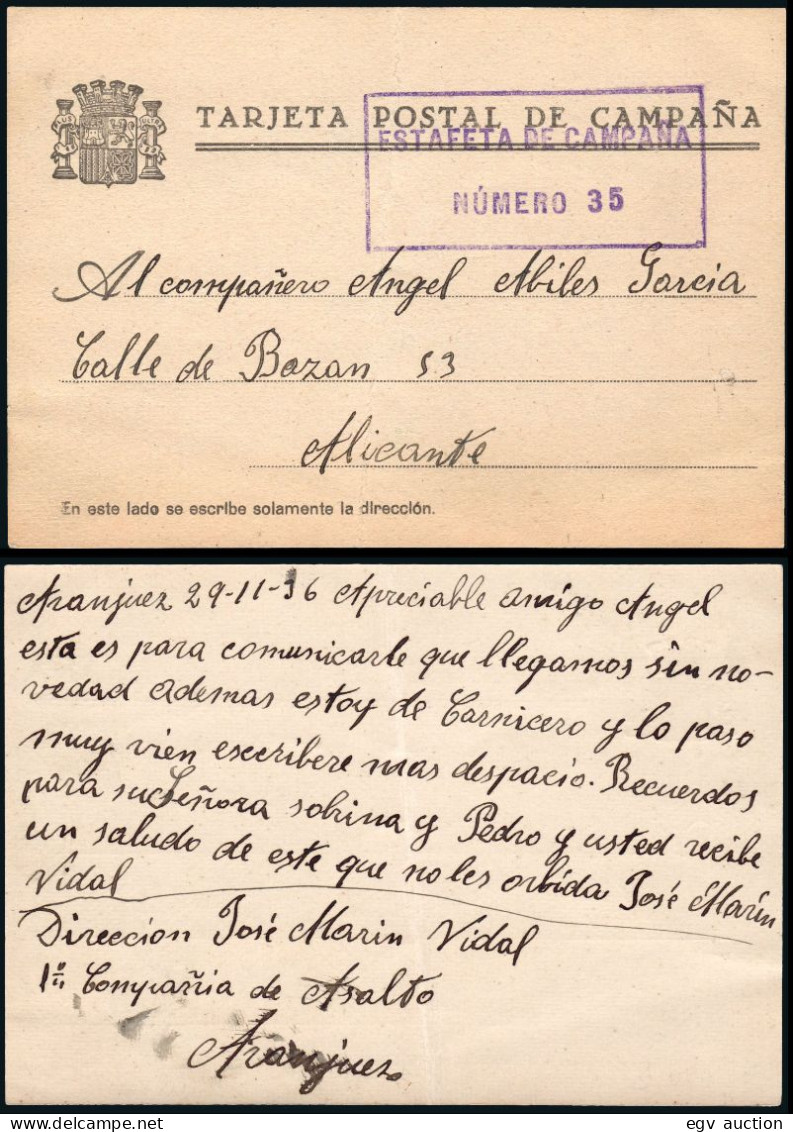 TARJETA POSTAL DE CAMPAÑA
ESTAFETA DE CAMPAÑA
NÚMERO 35
Al compañero Angel Abiles Garcia
Calle de Bazan 53
Alicante
En este lado se escribe solamente la dirección.
Aranjuez 29-11-36 Apreciable amigo Angel
esta es para comunicarle que llegamos sin no-
vedad ademas estoy de Carnicero y lo paso
muy vien escribere mas despacio. Recuerdos
para su Señora sobrina y Pedro y usted recibe
un saludo de este que no les orbida José Marin
Vidal
Direccion José Marin Vidal
1ª Compañia de Asalto
Aranjuez
egv auction